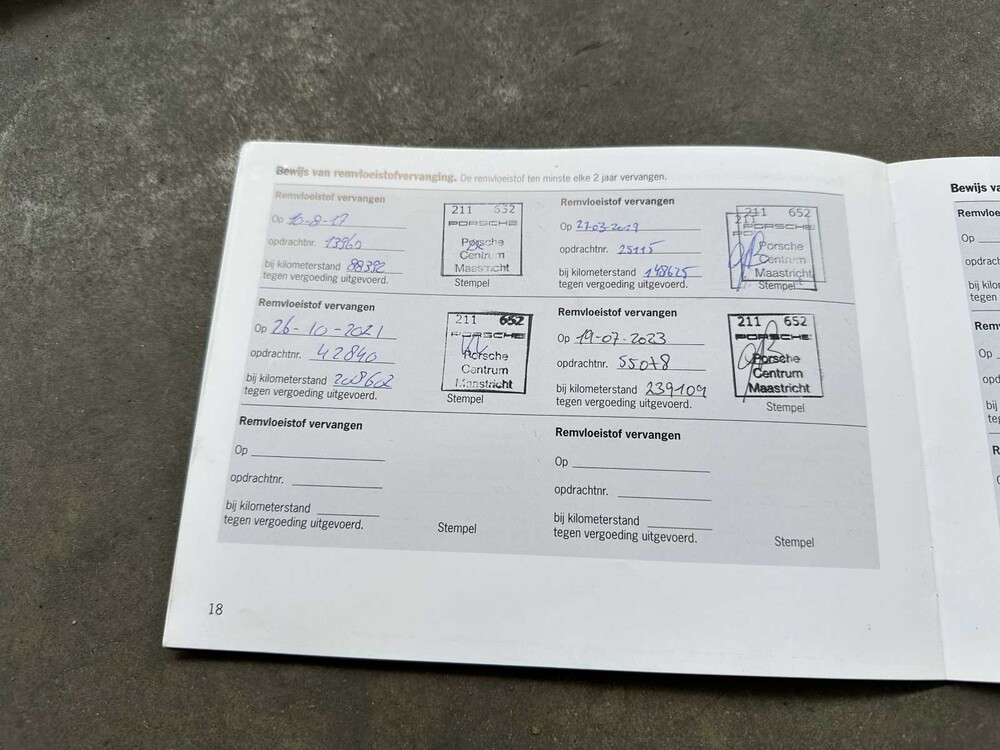 Bewijs van remvloeistofvervanging. De remvloeistof ten minste elke 2 jaar vervangen.
Remvloeistof vervangen
Op 10-8-17
opdrachtnr. 13960
bij kilometerstand 88392
tegen vergoeding uitgevoerd.
211 652
PORSCHE
Porsche
Centrum
Maastricht
Stempel
Remvloeistof vervangen
Op 27-03-2019
opdrachtnr. 25115
bij kilometerstand 148625
tegen vergoeding uitgevoerd.
211 652
PORSCHE
Porsche
Centrum
Maastricht
Stempel
Remvloeistof vervangen
Op 26-10-2021
opdrachtnr. 42840
bij kilometerstand 208602
tegen vergoeding uitgevoerd.
211 652
PORSCHE
Porsche
Centrum
Maastricht
Stempel
Remvloeistof vervangen
Op 19-07-2023
opdrachtnr. 55078
bij kilometerstand 239109
tegen vergoeding uitgevoerd.
211 652
PORSCHE
Porsche
Centrum
Maastricht
Stempel
Remvloeistof vervangen
Op
opdrachtnr.
bij kilometerstand
tegen vergoeding uitgevoerd.
Stempel
Remvloeistof vervangen
Op
opdrachtnr.
bij kilometerstand
tegen vergoeding uitgevoerd.
Stempel
18
Bewijs
Op
Op